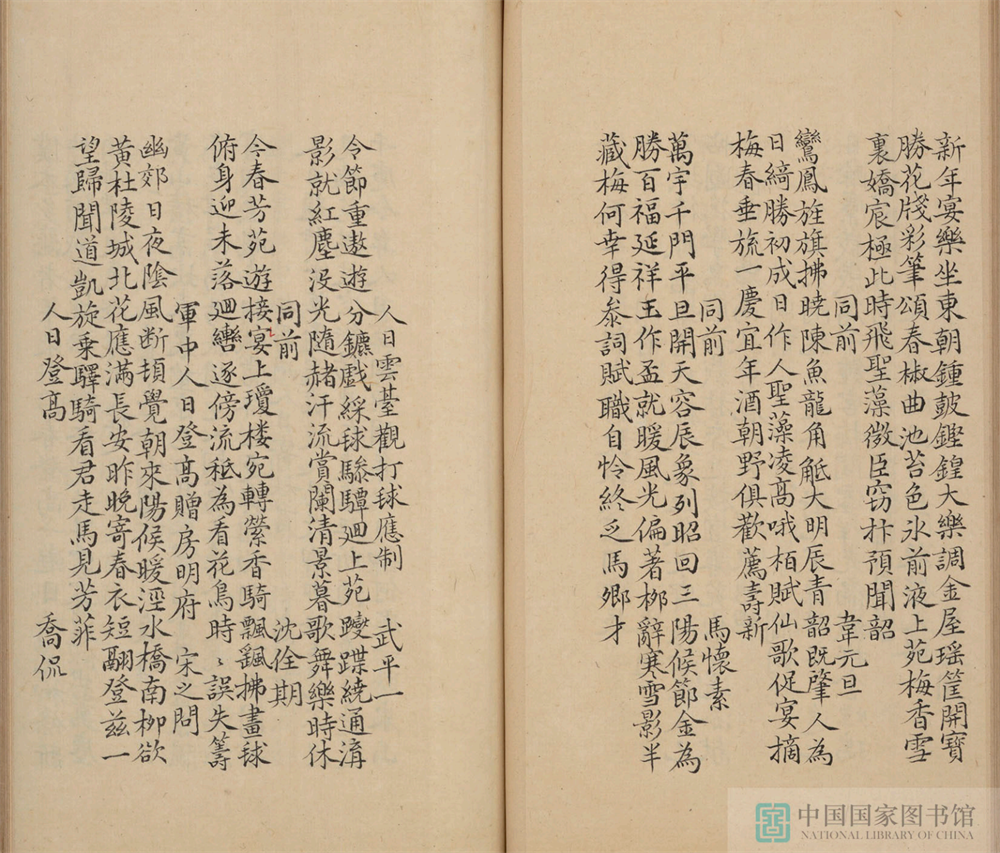 新年宴樂坐東朝鍾皷鏗鍠大樂調金屋瑶筐開寶
勝花牋彩筆頌春椒曲池苔色氷前液上苑梅香雪
裏嬌宸極此時飛聖藻微臣窃抃預聞韶
同前 韋元旦
鸞鳳旌旗拂曉陳魚龍角觝大明辰青韶既肇人為
日綺勝初成日作人聖藻凌高哦栢賦仙歌促宴摘
梅春垂旒一慶宜年酒朝野俱歡薦壽新
同前 馬懷素
萬宇千門平旦開天容辰象列昭回三陽候節金為
勝百福延祥玉作盃就暖風光偏著柳辭寒雪影半
藏梅何幸得叅詞賦職自怜終乏馬卿才
人日雲臺觀打球應制 武平一
令節重遨遊分鑣戲綵球驂驔廽上苑蹙蹀繞通溝
影就紅塵没光隨赭汗流賞闌清景暮歌舞樂時休
同前 沈佺期
今春芳苑遊接宴上瓊楼宛轉縈香騎飄颻拂畫球
俯身迎未落廽轡逐傍流秪為看花鳥時〻誤失籌
軍中人日登髙贈房明府 宋之問
幽郊日夜陰風断頓覺朝來陽候暖涇水橋南柳欲
黄杜陵城北花應滿長安昨晚寄春衣短翮登茲一
望歸聞道凱旋乗驛騎看君走馬見芳菲
人日登髙 喬侃
中国国家图书馆
NATIONAL LIBRARY OF CHINA